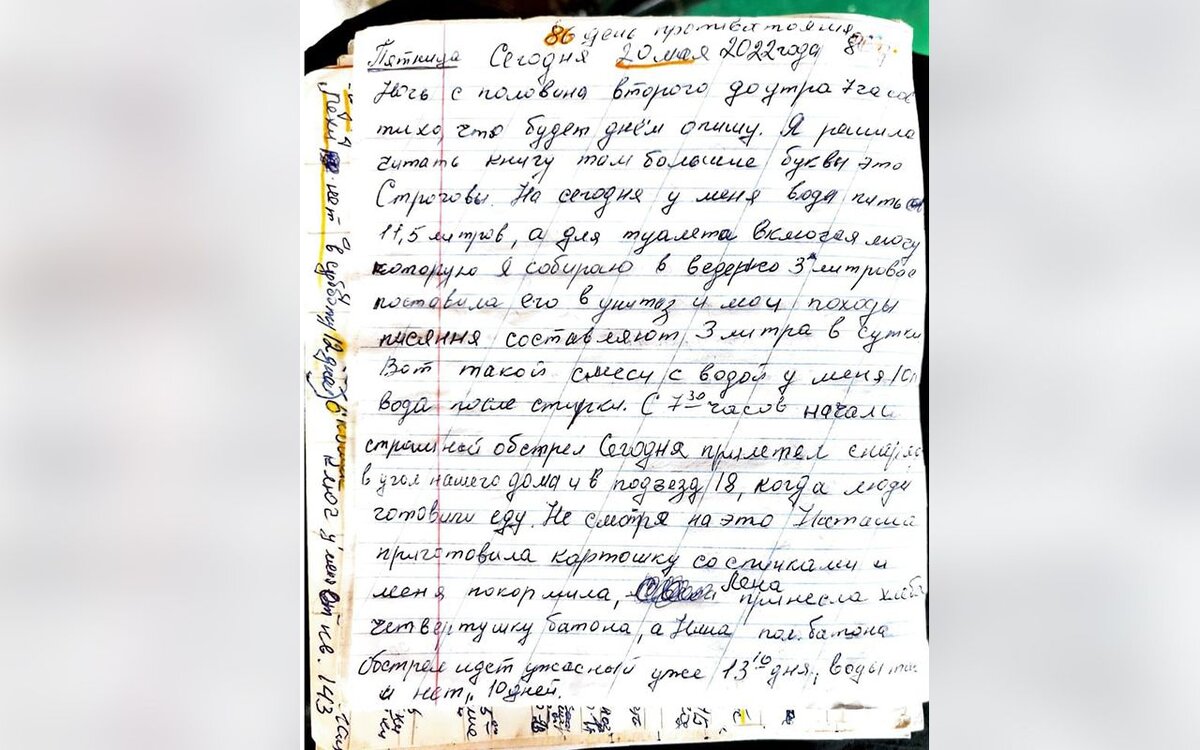 86 день противостояния
Пятница Сегодня 20 мая 2022 года
Ночь с половина второго до утра 7 часов
тихо, что будет днём опишу. Я решила
читать книгу там большие буквы это
Строговы. На сегодня у меня воды пить
11,5 литров, а для туалета включая мочу
которую я собираю в ведерко 3х литровое
поставила его в унитаз и мои походы
писяння составляют 3 литра в сутки
Вот такой смеси с водой у меня
вода после стирки. С 7 30 часов начали
страшный обстрел Сегодня прилетел снаряд
в угол нашего дома и в подъезд 18, когда люди
готовили еду. Не смотря на это Наташа
приготовила картошку со спичками и
меня покормила, Лена принесла хлеба
четвертушку батона, а Нина пол. батона
Обстрел идет ужасный уже 13 10 дня, воды
и нет, 10 дней.
нет в субботу 12 дней
ключ у меня от кв. 143